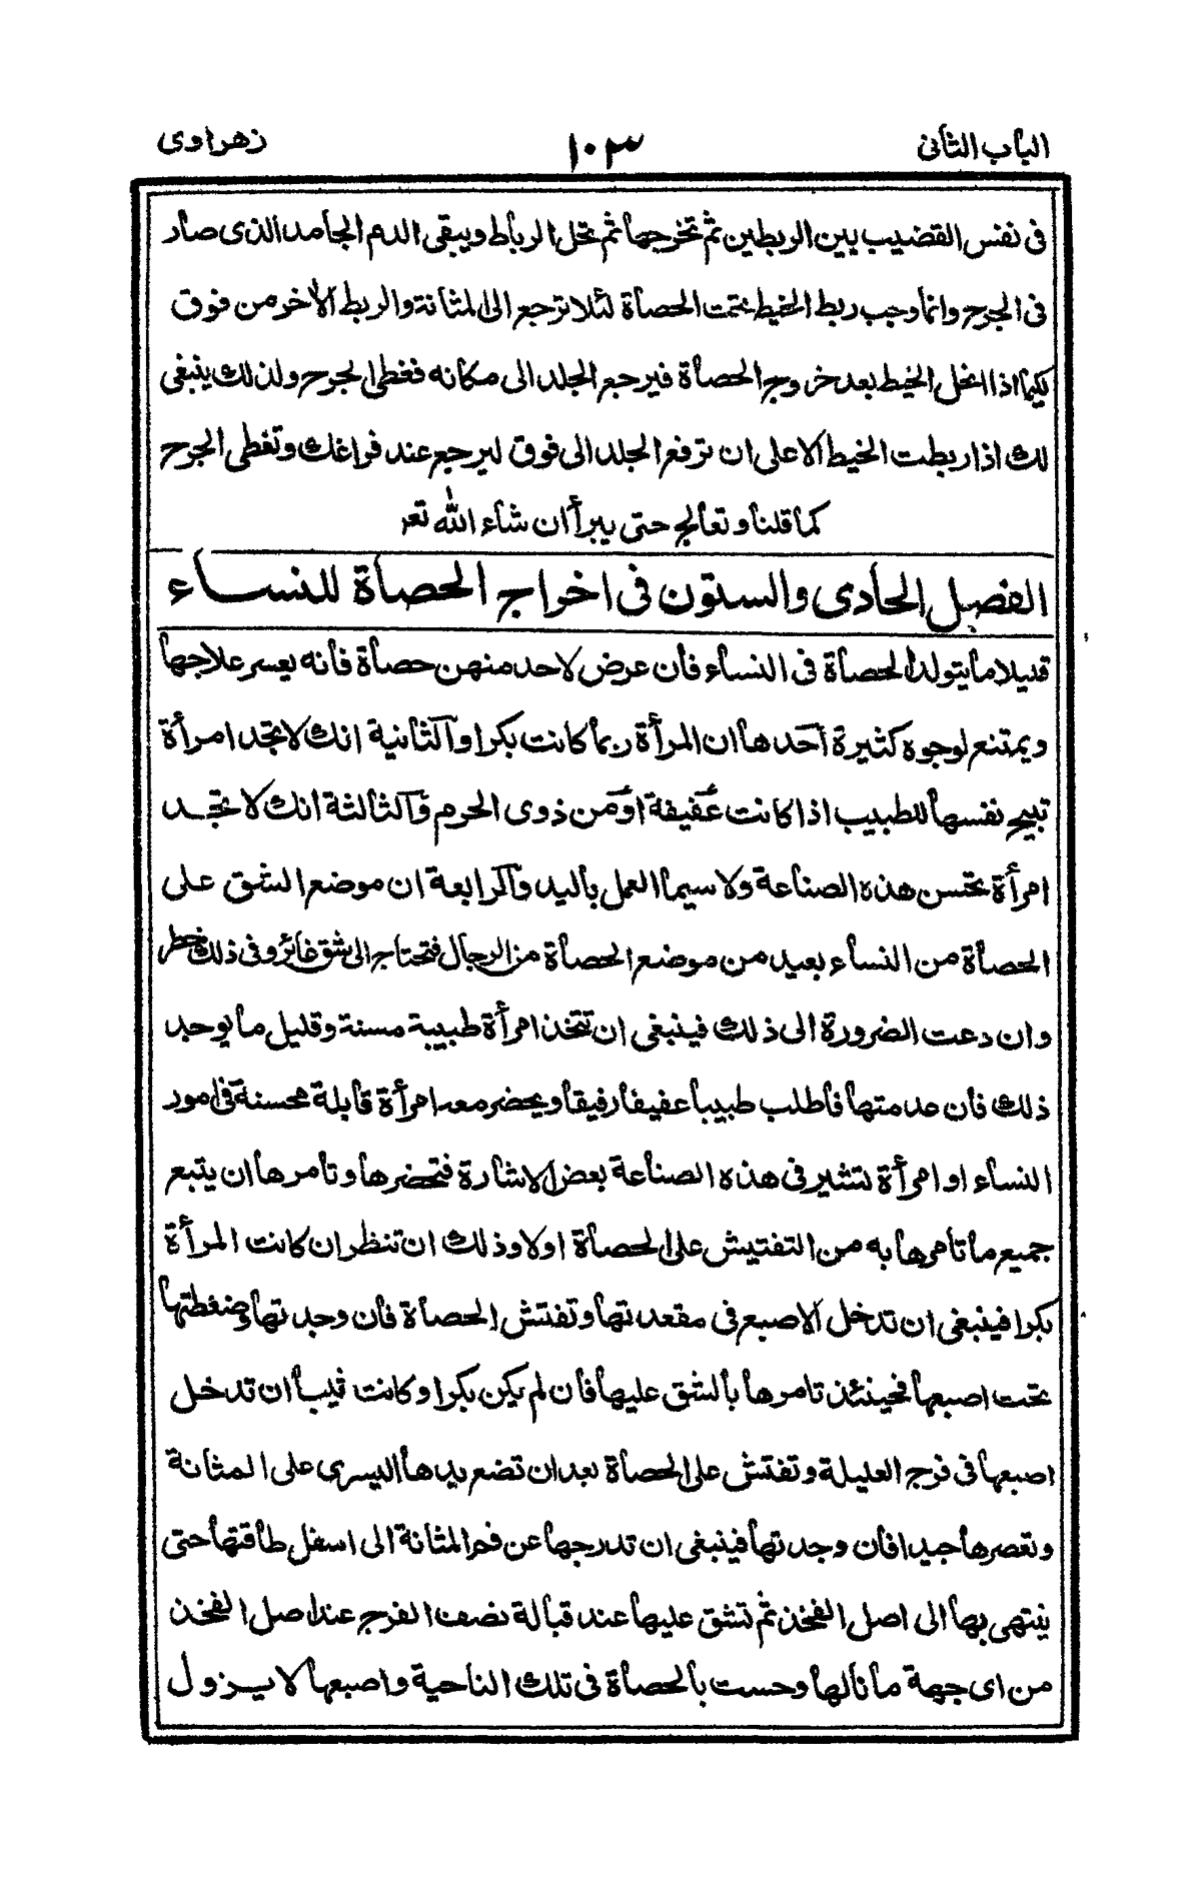 الباب الثانى ١٠٣ زهراوى
فى نفس القضيب بين الربطين ثم تخرجها ثم تحل الرباط ويبقى الدم الجامد الذى صار
فى الجرح وانما وجب ربط الخيط تحت الحصاة لئلا ترجع الى المثانة والربط الآخر من فوق
لكيما اذا انحل الخيط بعد خروج الحصاة فيرجع الجلد الى مكانه فغطى الجرح ولذلك ينبغى
لك اذا ربطت الخيط الاعلى ان ترفع الجلد الى فوق ليرجع عند فراغك وتغطى الجرح
كما قلنا وتعالج حتى يبرأ ان شاء الله تعر
الفصل الحادى والستون فى اخراج الحصاة للنساء
قليلا ما يتولد الحصاة فى النساء فان عرض لاحد منهن حصاة فانه يعسر علاجها
ويمتنع لوجوه كثيرة احدها ان المرأة ربما كانت بكرا والثانية انك لا تجد امرأة
تبيح نفسها للطبيب اذا كانت عفيفة او من ذوى الحرم والثالثة انك لا تجد
امرأة تحسن هذه الصناعة ولا سيما العمل باليد والرابعة ان موضع الشق على
الحصاة من النساء بعيد من موضع الحصاة من الرجال فتحتاج الى شق غائر وفى ذلك خطر
وان دعت الضرورة الى ذلك فينبغى ان تتخذ امرأة طبيبة مسنة وقليل ما يوجد
ذلك فان عدمتها فاطلب طبيبا عفيفا رفيقا ويحضر معه امرأة قابلة محسنة فى امور
النساء او امرأة تشير فى هذه الصناعة بعض الاشارة فتحضرها وتامرها ان يتبع
جميع ما تامرها به من التفتيش على الحصاة اولا وذلك ان تنظر ان كانت المرأة
بكرا فينبغى ان تدخل الاصبع فى مقعدتها وتفتش الحصاة فان وجدتها وضغطتها
تحت اصبعها فحينئذ تامرها بالشق عليها فان لم يكن بكرا وكانت ثيبا ان تدخل
اصبعها فى فرج العليلة وتفتش على الحصاة بعد ان تضع يدها اليسرى على المثانة
وتعصرها جيدا فان وجدتها فينبغى ان تدرجها عن فم المثانة الى اسفل طاقتها حتى
ينتهى بها الى اصل الفخذ ثم تشق عليها عند قبالة نصف الفرج عند اصل الفخذ
من اى جهة ما نالها وحست بالحصاة فى تلك الناحية واصبعها لا يزول